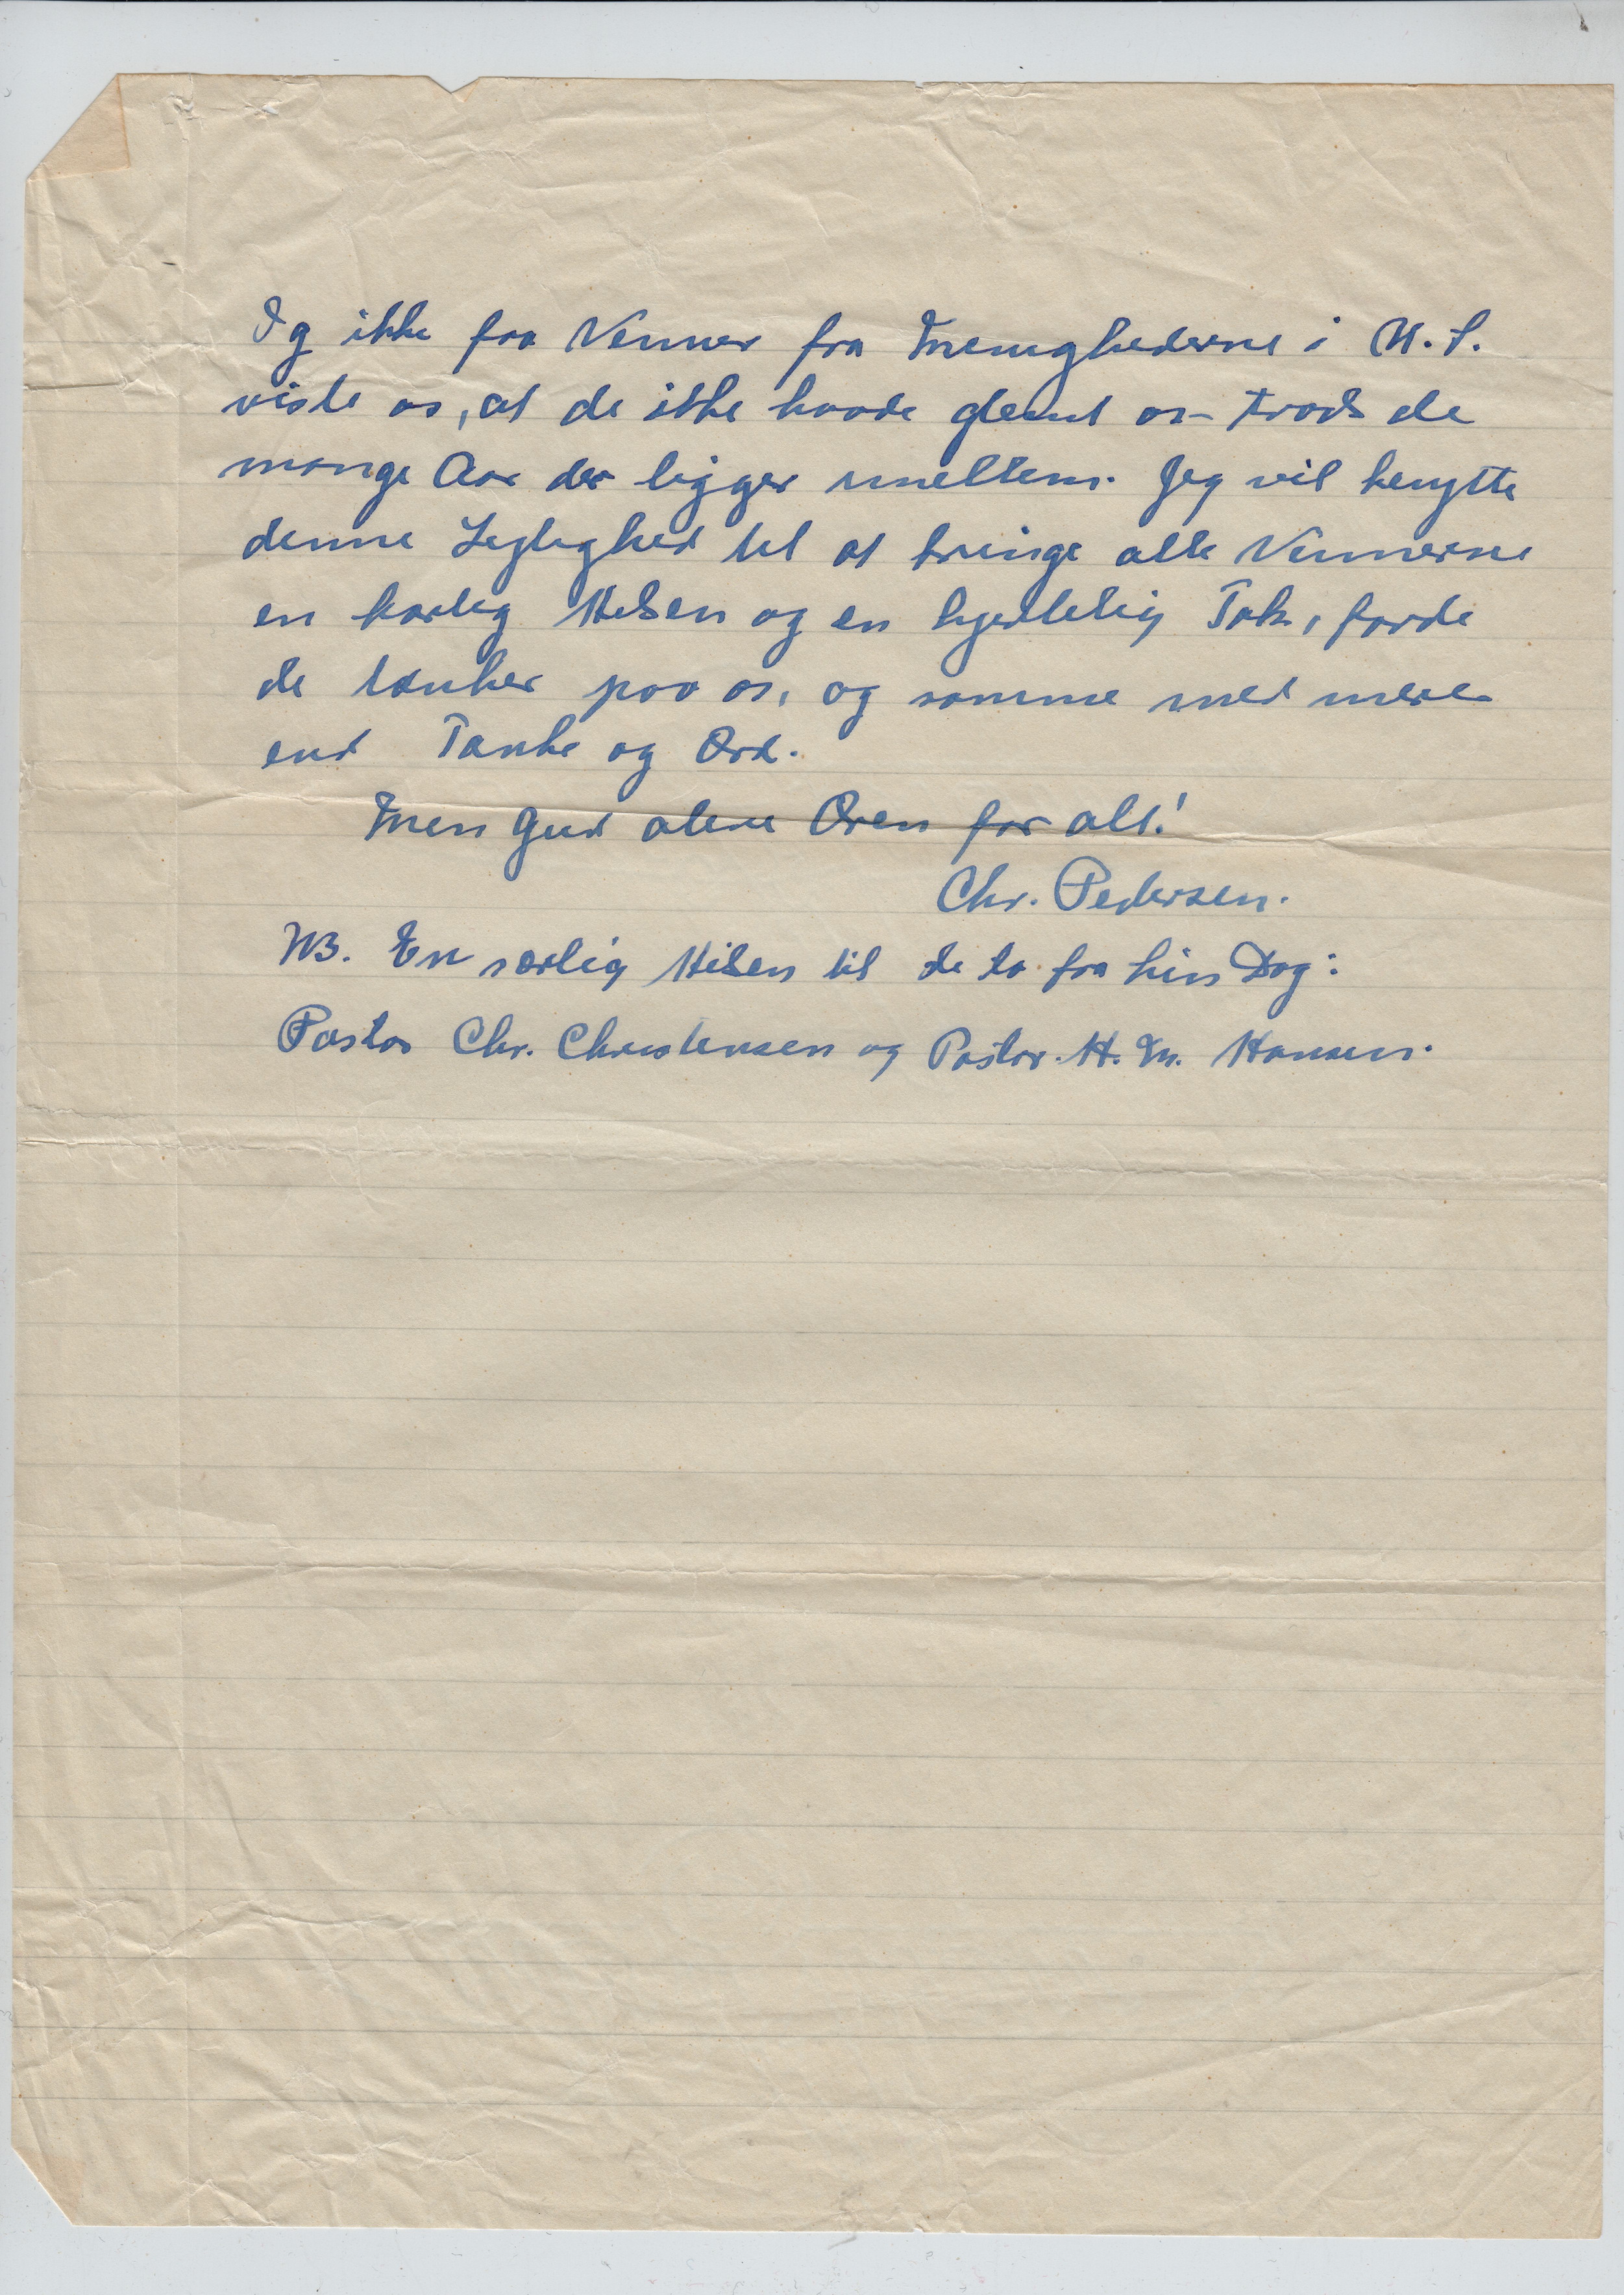 Og ikke faa Venner fra Menighederne i U.S.
viste os, at de ikke havde glemt os – trods de
mange Aar der ligger imellem. Jeg vil benytte
denne Lejlighed til at bringe alle Vennerne
en kærlig Hilsen og en hjertelig Tak, fordi
de tænker paa os, og somme med mere
end Tanke og Ord.
Men Gud alene Æren for alt!
Chr. Pedersen.
NB. En særlig Hilsen til de to fra hin Dag:
Pastor Chr. Christensen og Pastor H. M. Hansen.